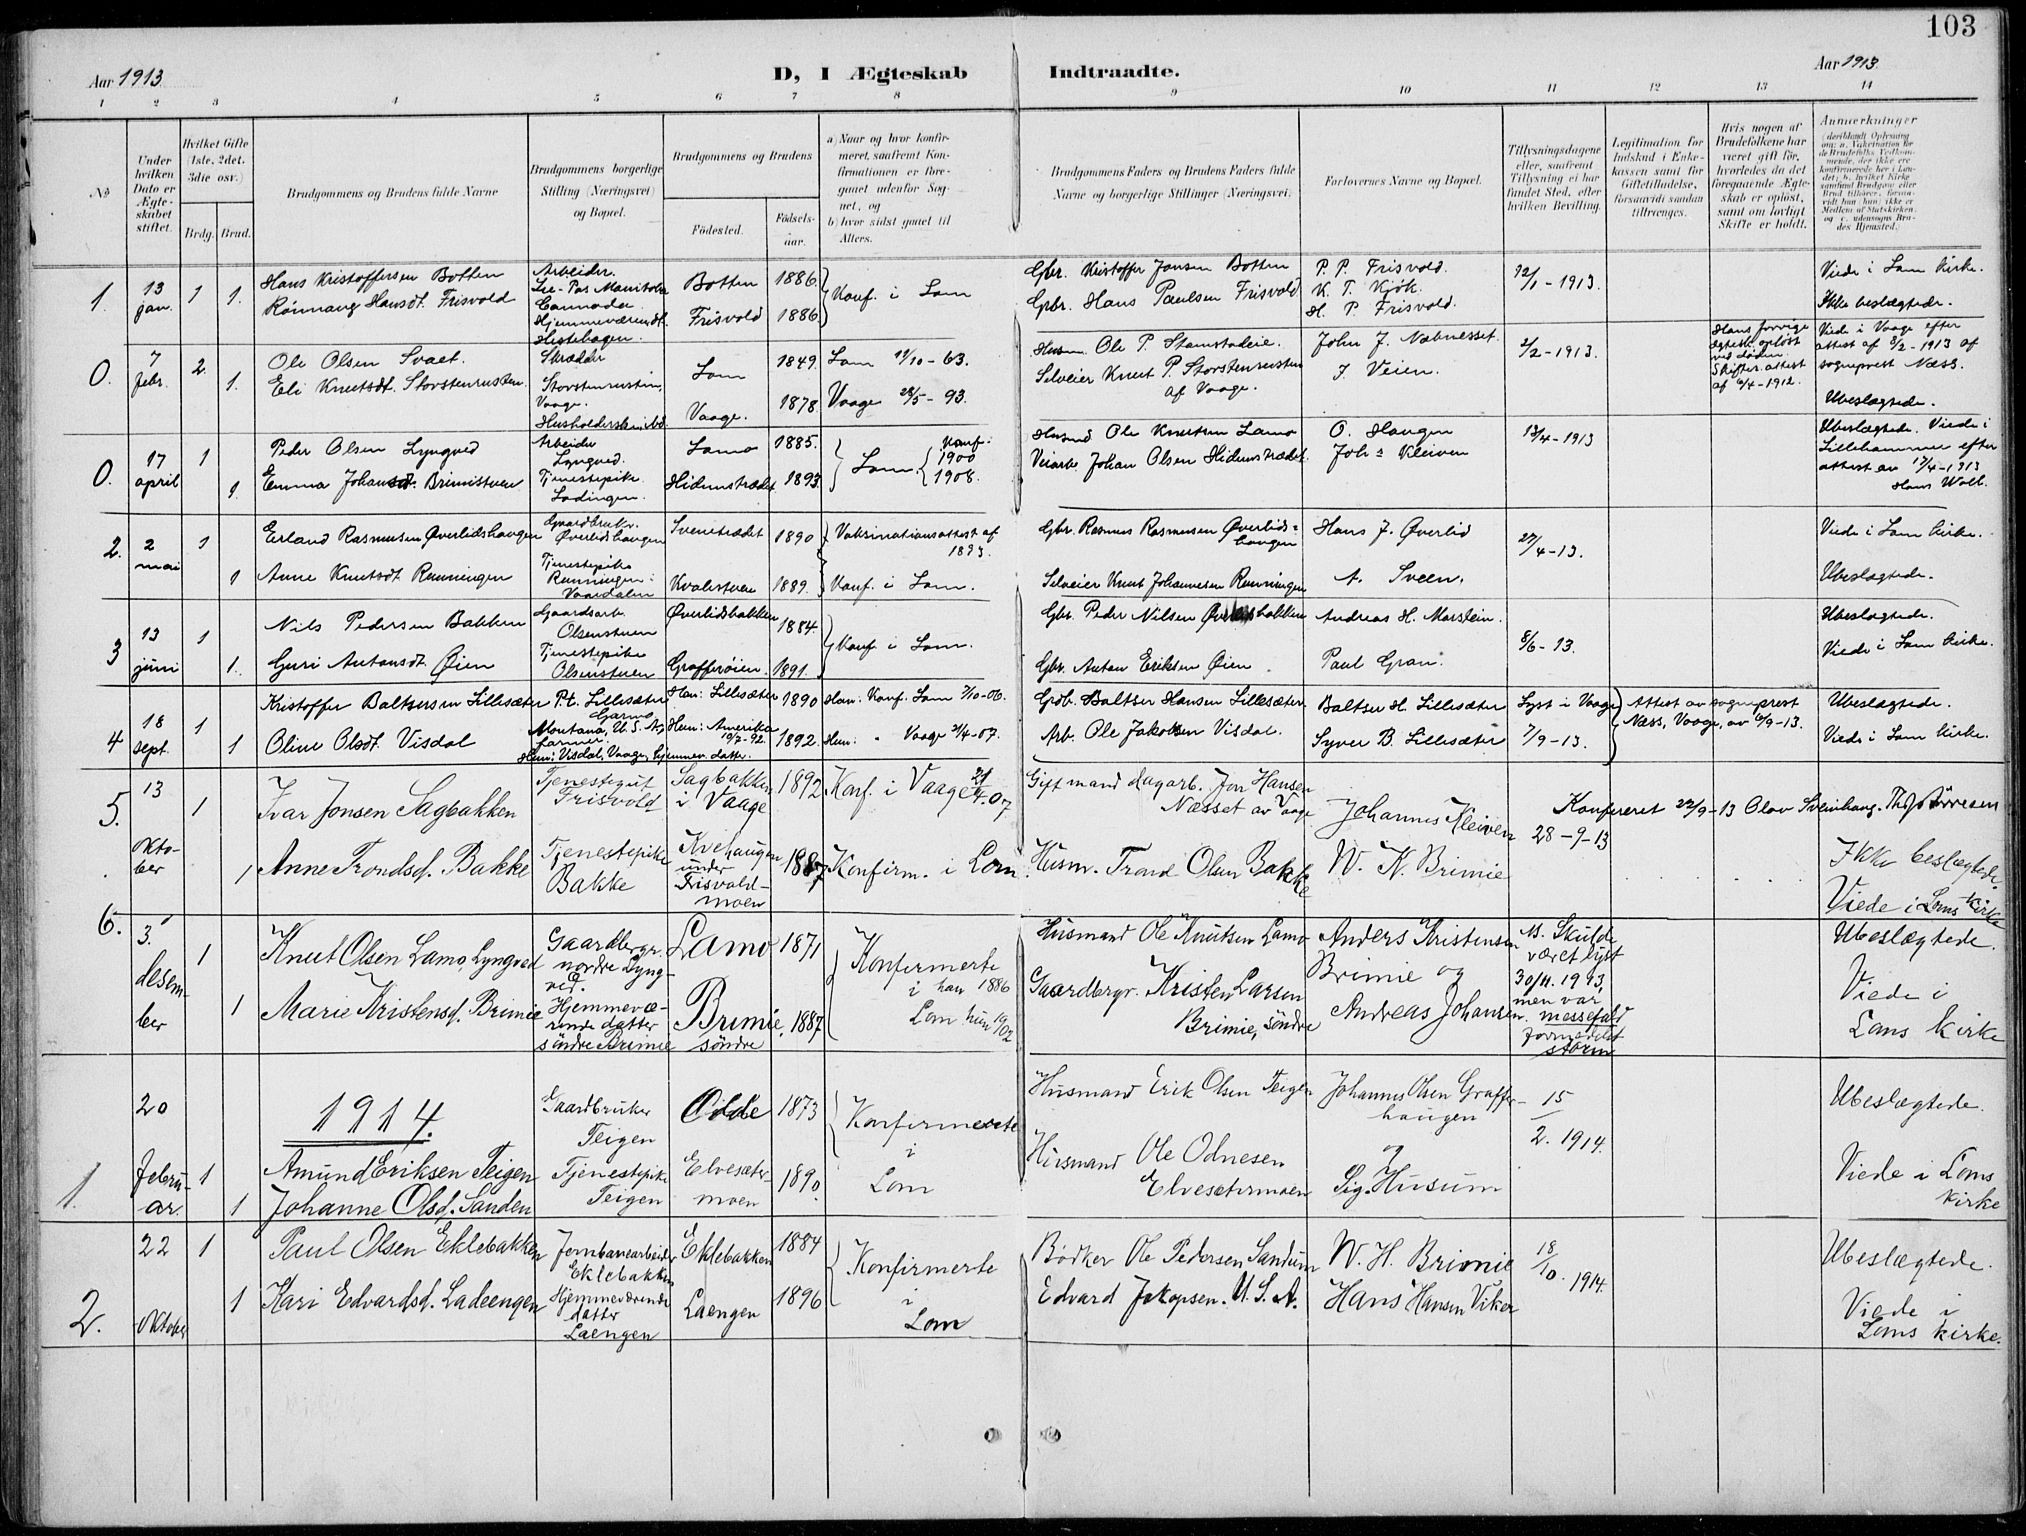 103
Aar 1913.
D, I Ægteskab Indtraadte.
Aar 1913.
1 2 3 4 5 6 7 8 9 10 11 12 13 14
No
Under hvilken Dato er Ægteskabet stiftet.
Hvilket Gifte (1ste, 2det. 3die osv.)
Brdg. Brud.
Brudgommens og Brudens fulde Navne
Brudgommens borgerlige Stilling (Næringsvei) og Bopæl.
Brudgommens og Brudens
Födested.
Födsels-aar.
a) Naar og hvor konfirmeret, saafremt Konfirmationen er foregaaet udenfor Sognet, og
b) hvor sidst gaaet til Alters.
Brudgommens Faders og Brudens Faders fulde Navne og borgerlige Stillinger (Næringsvei).
Forlovernes Navne og Bopæl.
Tillysningsdagene eller, saafremt Tillysning ei har fundet Sted, efter hvilken Bevilling.
Legitimation for Indskud i Enkekassen samt for Giftetilladelse, forsaavidt saadan tiltrænges.
Hvis nogen af Brudefolkene har været gift för, hvorledes da det foregaaende Ægteskab er oplöst, samt om lovligt Skifte er holdt.
Anmærkninger
(deriblandt Oplysning om: a. Vakcination for de Brudefolks Vedkommende, der ikke ere konfirmerede her i Landet; b. hvilket Kirkesamfund Brudgom eller Brud tilhører, forsaavidt han (hun) ikke er Medlem af Statskirken, og c. udensogns Brudes Hjemsted.)
1. 13 jan. 1 1.
Hans Kristoffersen Botten
Rönnaug Hansdt. Frisvold
Arbeider.
Manitoba
Cannada.
Hjemmeværendt.
Hestehagen.
Botten 1886.
Frisvold 1886.
Konf. i Lom
Gbr. Kristoffer Jonsen Botten
Gbr. Hans Paulsen Frisvold
P. P. Frisvold.
K. T. Kjök.
H. P. Frisvold.
12/1 - 1913.
Viede i Lom kirke.
Ikke beslægtede.
0. 7 febr. 2. 1.
Ole Olsen Svaet.
Eli Knutsdt. Storstenrusten.
Skrædder
Storstenrusten,
Vaage.
Lom 1849.
Vaage. 1878
Lom 11/10 - 63.
Vaage 28/5 - 93.
Husm. Ole P. Stamstadeie.
Selveier Knut P. Storstenrusten
af Vaage.
John J. Nabnesset.
J. Veien.
2/2 - 1913.
Hans forrige
egtesk. oplöst
ved döden.
Skifter. attest
af 6/4 - 1912.
Viede i Vaage efter
attest af 8/2 - 1913 af
sogneprest Næss.
Ubeslægtede.
0. 17 april 1 1.
Peder Olsen Lyngved
Emma Johansdt. Brimistuen
Arbeider
Lyngved.
Tjenestepike
Ladingen.
Lamo 1885.
Hidemstrædet 1893.
Lom. Konf. 1900 1908.
Husmd Ole Knutsen Lamo
Veiarb. Johan Olsen Hidemstrædet.
O. Haugen
Joh= Kleiven
13/4 - 1913
Ubeslægtede. Viede i
Lillehammer efter
attest av 17/4 - 1913
Hans Woll.
2. 2 mai 1 1
Erland Rasmussen Øverlidshaugen
Anne Knutsdt Rusningen
Gaardbruker.
Øverlidshaugen
Tjenestepike
Vaardalen
Sveinstrædet 1890
Kvalestuen 1889.
Vaksinationsattest af
1893.
Konf. i Lom.
Gbr. Rasmus Rasmussen Øverlids=
haugen
Selveier Knut Johannesen Rusningen
Hans J. Øverlid
A. Sveen.
27/4 - 13.
Viede i Lom kirke.
Ubeslægtede.
3 13 juni 1 1.
Nils Pedersen Bakken
Guri Antonsdt Øien
Gaardsarb.
Olsenstuen
Tjenestepike
Olsenstuen
Øverlidsbakken 1884.
Grafferöien. 1891.
Konf. i Lom.
Gbr. Peder Nilsen
Gbr. Anton Eriksen Øien.
Andreas H. Marstein.
Paul Gran.
8/6 - 13.
Ubeslægtede.
Viede i Lom kirke.
4 18 sept. 1 1
Kristoffer Baltsersen Lillesæter
Oline Olsdt. Visdal
P.t. Lillesæter
Garmo
Montana, U. S. A.,
farmer.
Hun: Visdal, Vaage, hjemmev. datter.
Han: Lillesæter 1890
Hun: Amerika 1892
Han: Konf. Lom 7/10-06.
Hun: " Vaage 21/4-07.
Grdb. Baltser Hansen Lillesæter.
Arb. Ole Jakobsen Visdal.
Baltser H. Lillesæter
Syver B. Lillesæter
Lyst i Vaage
7/9 - 13.
Attest av sogneprest
Næss, Vaage, av 6/9 - 13.
Ubeslægtede.
Viede i Lom kirke.
5. 13 Oktober 1 1
Ivar Jonsen Sagbakken
Anne Trondsd. Bakke
Tjenestegut
Frisvold
Tjenestepike
Bakke
Sagbakken
i Vaage 1892
Kvehaugen
under
Frisvold-
moen 1887
Konf. i Vaage 21/4.07
Konfirm. i Lom
Gift mand dagarb. Jon Hansen
Næsset av Vaage
Husm. Trond Olsen Bakke
Johannes Kleiven
W. H. Brimie
Konfereret 22/9-13 Olav Sveinhaug.
28 - 9 - 13
Ikke beslægtede.
Viede i Loms kirke
6. 3. desember 1 1
Knut Olsen Lamo, Lyngved
Marie Kristensd. Brimie
Gaardbrgr.
nordre Lyng-
ved.
Hjemmevæ-
rende datter
söndre Brimie
Lamo 1871
Brimie, 1887
söndre
Konfirmerte
i han 1886
Lom hun 1902
Husmand Ole Knutsen Lamo
Gaardbergr. Kristen Larsen
Brimie, söndre
Anders Kristensen
Brimie og
Andreas Johansen.
Skulde
været lyst
30/11. 1913,
men var
messefald
formedelst
storm
Ubeslægtede.
Viede i
Loms Kirke
1914.
1. 20 Februar. 1 1
Amund Eriksen Teigen
Johanne Olsd. Sanden
Gaardbruker
Teigen
Tjenestepike
Teigen
Odde 1873
Elvesæter-
moen 1890.
Konfirmerte
i
Lom
Husmand Erik Olsen Teigen
Husmand Ole Odnesen
Elvesætermoen
Johannes Olsen Graffer-
haugen
og
Sig. Husum
15/2. 1914.
Ubeslægtede.
Viede i Loms
kirke
2. 22 Oktober 1 1
Paul Olsen Eklebakken
Kari Edvardsd. Ladeengen
Jernbanearbeider
Eklebakken
Hjemmeværende
datter
Laengen
Eklebakken 1884
Laengen 1896
Konfirmerte
i
Lom
Bødker Ole Pedersen Sandum
Edvard Jakopsen. U. S. A.
W. H. Brimie
Hans Hansen Viker
18/10. 1914.
Ubeslægtede.
Viede i
Loms kirke.